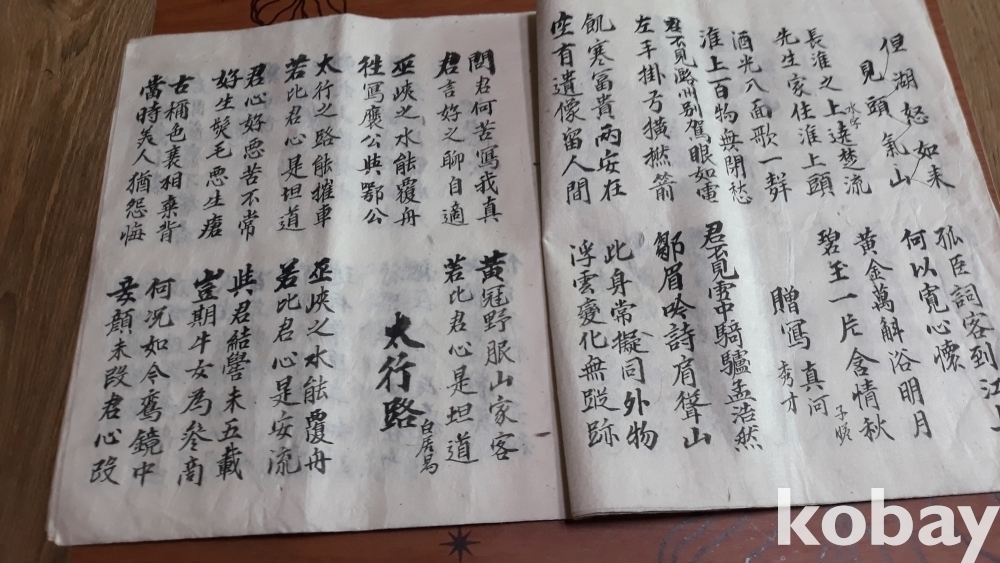 但見湖頭怒氣如山来
孤臣詞客到江上
何以寬心懷
長淮之上遶楚流
水字
先生家住淮上頭
黃金萬斛浴明月
碧玉一片含情秋
酒光八面歌一群
淮上百物無閉愁
贈寫真何秀才
子瞻
君不見潞州別駕眼如電
左手掛弓橫撚箭
君不見雪中騎驢孟浩然
皺眉吟詩肩聳山
飢寒富貴兩安在
座有遺像留人間
此身常擬同外物
浮雲變化無蹤跡
問君何苦寫我真
君言好之聊自適
黃冠野服山家客
若比君心是坦道
巫峽之水能覆舟
徃寫褒公與鄂公
太行路
白居易
太行之路能摧車
若比君心是坦道
巫峽之水能覆舟
若比君心是安流
君心好惡苦不常
好生髮毛惡生瘡
與君結髮未五載
豈期牛女為參商
古稱色衰相棄背
當時美人猶怨悔
何況如今鸞鏡中
妾顏未改君心改
kobay